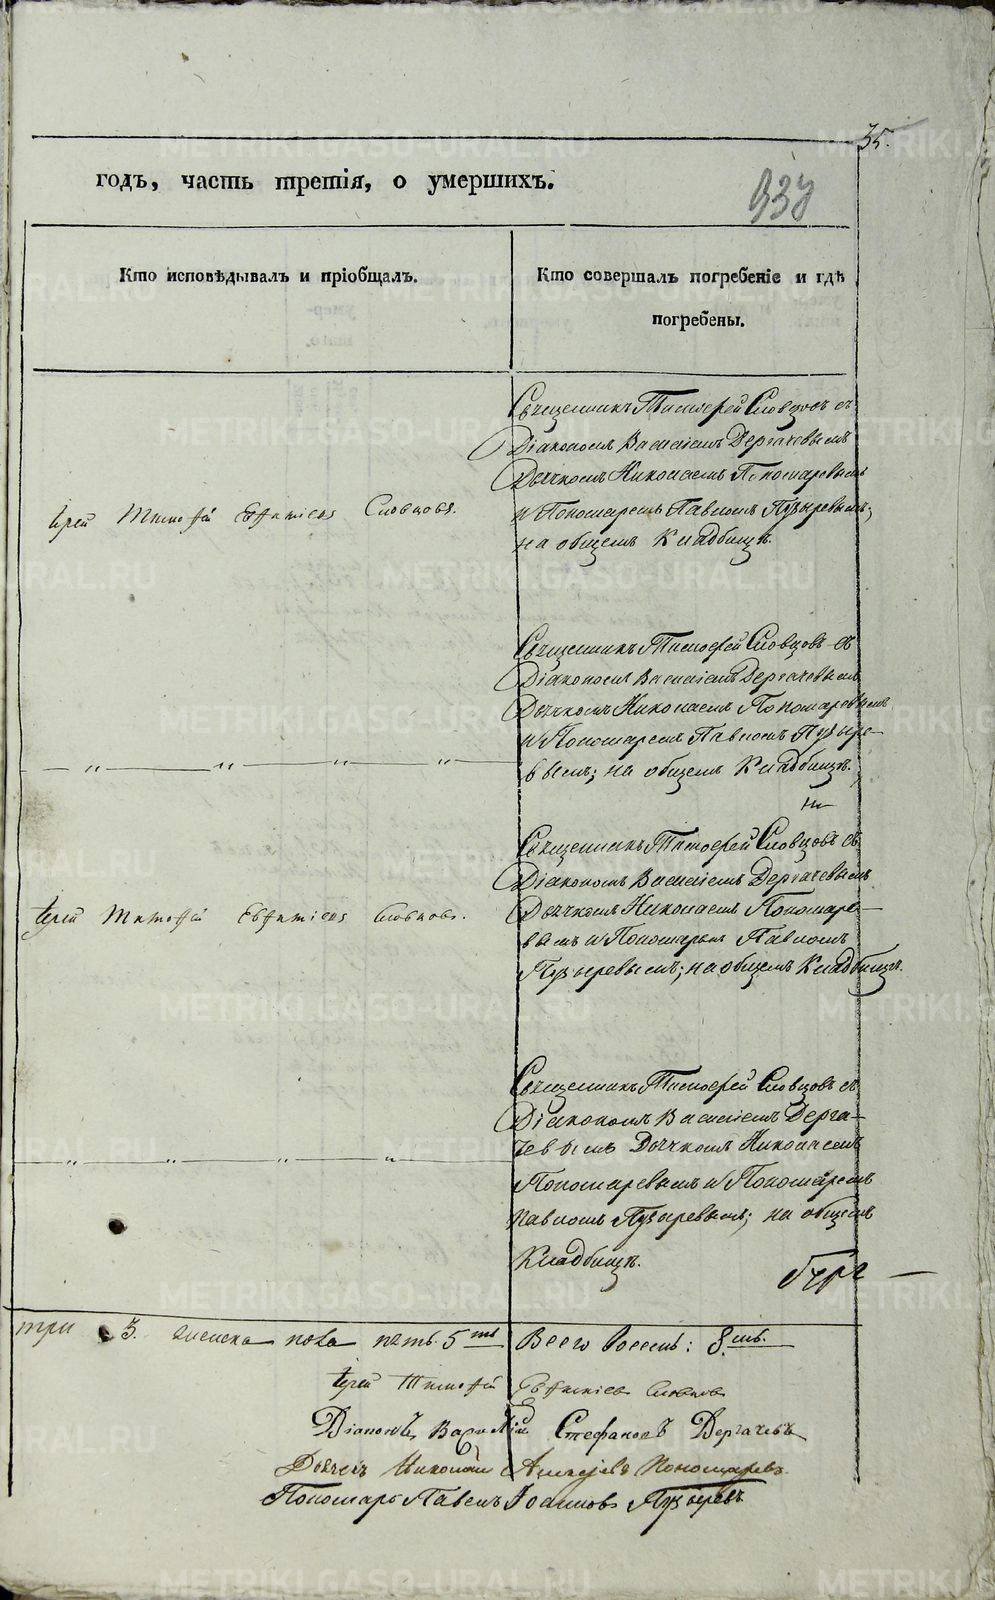 35.
годъ, часть третія, о умершихъ.
Кто исповѣдывалъ и пріобщалъ.
Кто совершалъ погребеніе и гдѣ
погребены.
Священникъ Тимоѳей Словцовъ съ
Діакономъ Василіемъ Дергачевымъ
Дьячкомъ Николаемъ Пономаревымъ
и Пономаремъ Павломъ Пузыревымъ;
на общемъ Кладбищѣ.
Іерей Тимоѳей Евѳиміевъ Словцовъ.
Священникъ Тимоѳей Словцовъ съ
Діакономъ Василіемъ Дергачевымъ
Дьячкомъ Николаемъ Пономаревымъ
и Пономаремъ Павломъ Пузыре-
вымъ; на общемъ Кладбищѣ.
— „ — „ — „ — „ —
Священникъ Тимоѳей Словцовъ съ
Діакономъ Василіемъ Дергачевымъ
Дьячкомъ Николаемъ Пономаре-
вымъ и Пономарем Павломъ
Пузыревымъ; на общемъ Кладбищѣ.
Іерей Тимоѳей Евѳиміевъ Словцовъ.
Священникъ Тимоѳей Словцовъ съ
Діакономъ Василіемъ Дерга-
чевымъ Дьячкомъ Николаемъ
Пономаревымъ и Пономаремъ
Павломъ Пузыревымъ; на общемъ
Кладбищѣ.
— „ — „ — „ — „ —
три 3. женска пола пять. 5ть
Всего восемь: 8.мь.
Іерей Тимоѳей Евѳиміевъ Словцовъ
Діаконъ Василій Стефановъ Дергачевъ
Дьячекъ Николай Алексѣевъ Пономаревъ.
Пономарь Павелъ Іоанновъ Пузыревъ
METRIKI.GASO-URAL.RU